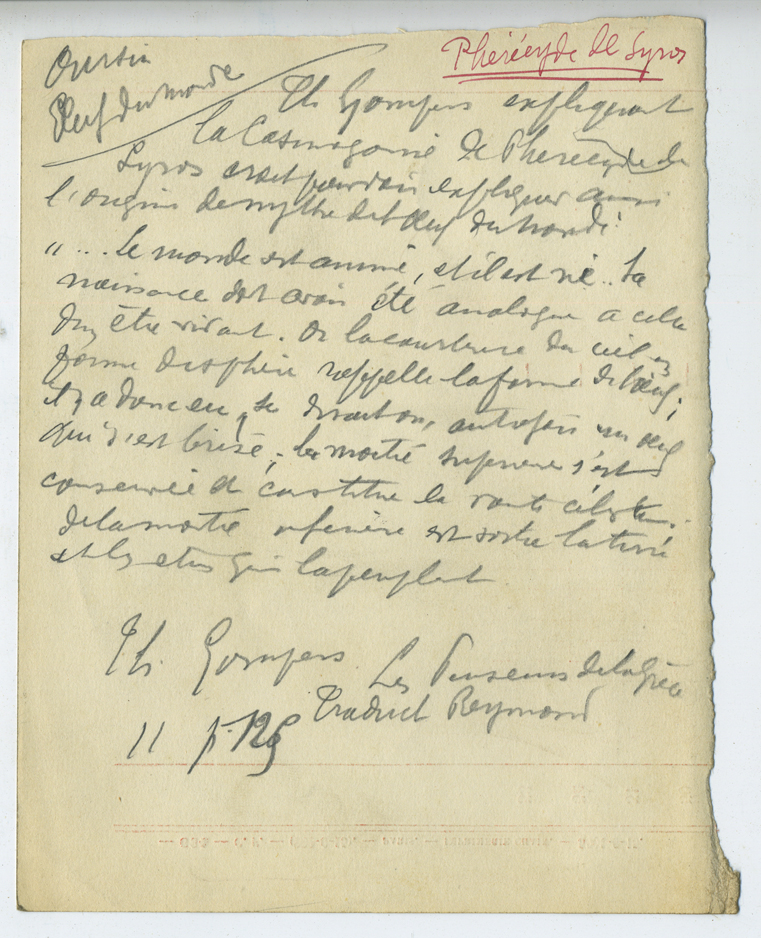 Phérécyde de Syros
Œuf du monde
Th Gompers expliquant
la Cosmogonie de Phérécyde de
Syros croit pouvoir expliquer ainsi
l'origine du mythe de l'œuf du monde
"... le monde est animé, et il est né. Sa
naissance doit avoir été analogue a celle
d'un être vivant. Or la courbure du ciel en
forme de sphère rappelle la forme de l'œuf;
il y a donc eu, se disait on, autrefois un œuf
qui s'est brisé; la moitié supérieure s'est
conservée et constitue la voute céleste;
de la moitié inférieure est sortie la terre
et les êtres qui la peuplent
Th. Gompers Les Penseurs de la Grèce
Traduct Reymond
p. 129